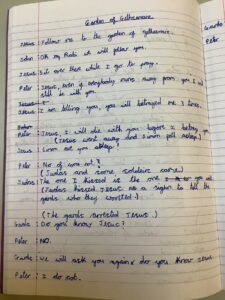 Garden of Gethsemane
Jesus : Follow me to the garden of gethsemane.
John : Oh my Rabi we will follow you.
Jesus : sit over there while I go to pray.
Peter : Jesus, even if everybody runs away from you I will
still be with you.
Jesus : I am telling you, you will betrayed me 3 times.
Peter : Jesus, I will die with you before I betray you
(Jesus went away and Simon fell asleep)
Jesus : Simon are you asleep?
Peter : No of corse not!
(Judas and some soldiers came)
Judas : The one I kissed is the one
(Judas kissed Jesus as a sign to tell the
gards who they wanted)
(The gards arrested Jesus)
Guards : Do you know Jesus?
Peter : NO.
Guards : We will ask you again do you know Jesus.
Peter : I do not.
Guards
Peter :